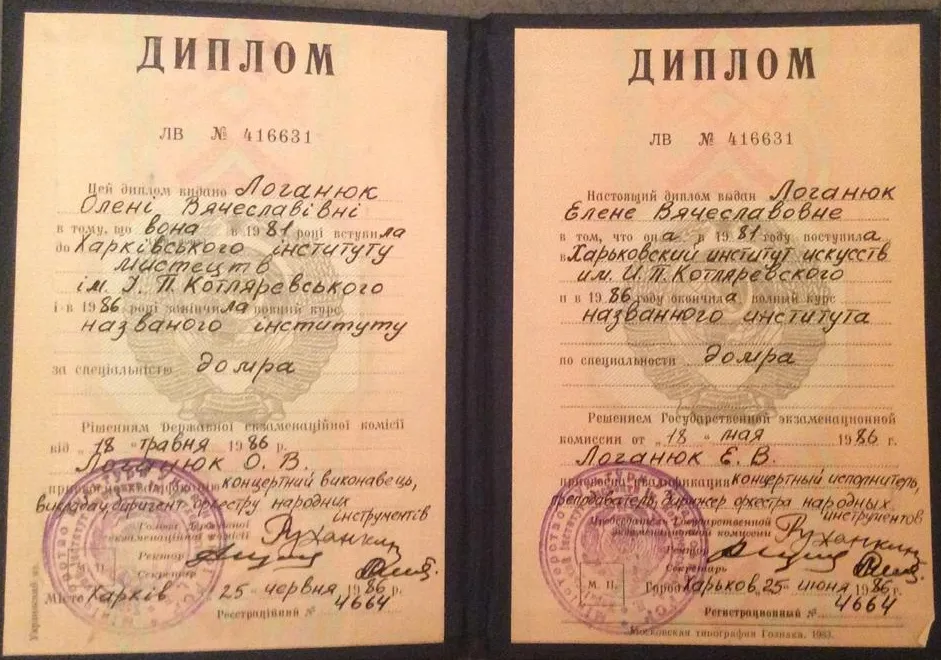 ДИПЛОМ
ЛВ № 416631
Цей диплом видано Логанюк
Олені Вячеславівні
в тому, що вона в 1981 році вступила
до Харківського інституту
мистецтв
ім. І. П. Котляревського
і в 1986 році закінчила повний курс
названого інституту
за спеціальністю домра
Рішенням Державної екзаменаційної комісії
від „18" травня 1986 р.
Логанюк О. В.
концертний виконавець,
викладач, диригент оркестру народних
інструментів
Голова Державної
екзаменаційної комісії
Ректор
Секретар
Місто Харків 25 червня 1986 р.
Реєстраційний № 4664
ДИПЛОМ
ЛВ № 416631
Настоящий диплом выдан Логанюк
Елене Вячеславовне
в том, что она в 1981 году поступила
в Харьковский институт искусств
им. И. П. Котляревского
и в 1986 году окончила полный курс
названного института
по специальности домра
Решением Государственной экзаменационной
комиссии от „18" мая 1986 г.
Логанюк Е. В.
присвоена квалификация концертный исполнитель,
преподаватель, дирижер оркестра народных
инструментов
Председатель Государственной
экзаменационной комиссии
Ректор
Секретарь
М. П.
Город Харьков, 25 июня 1986 г.
Регистрационный № 4664
Московская типография Гознака. 1983.